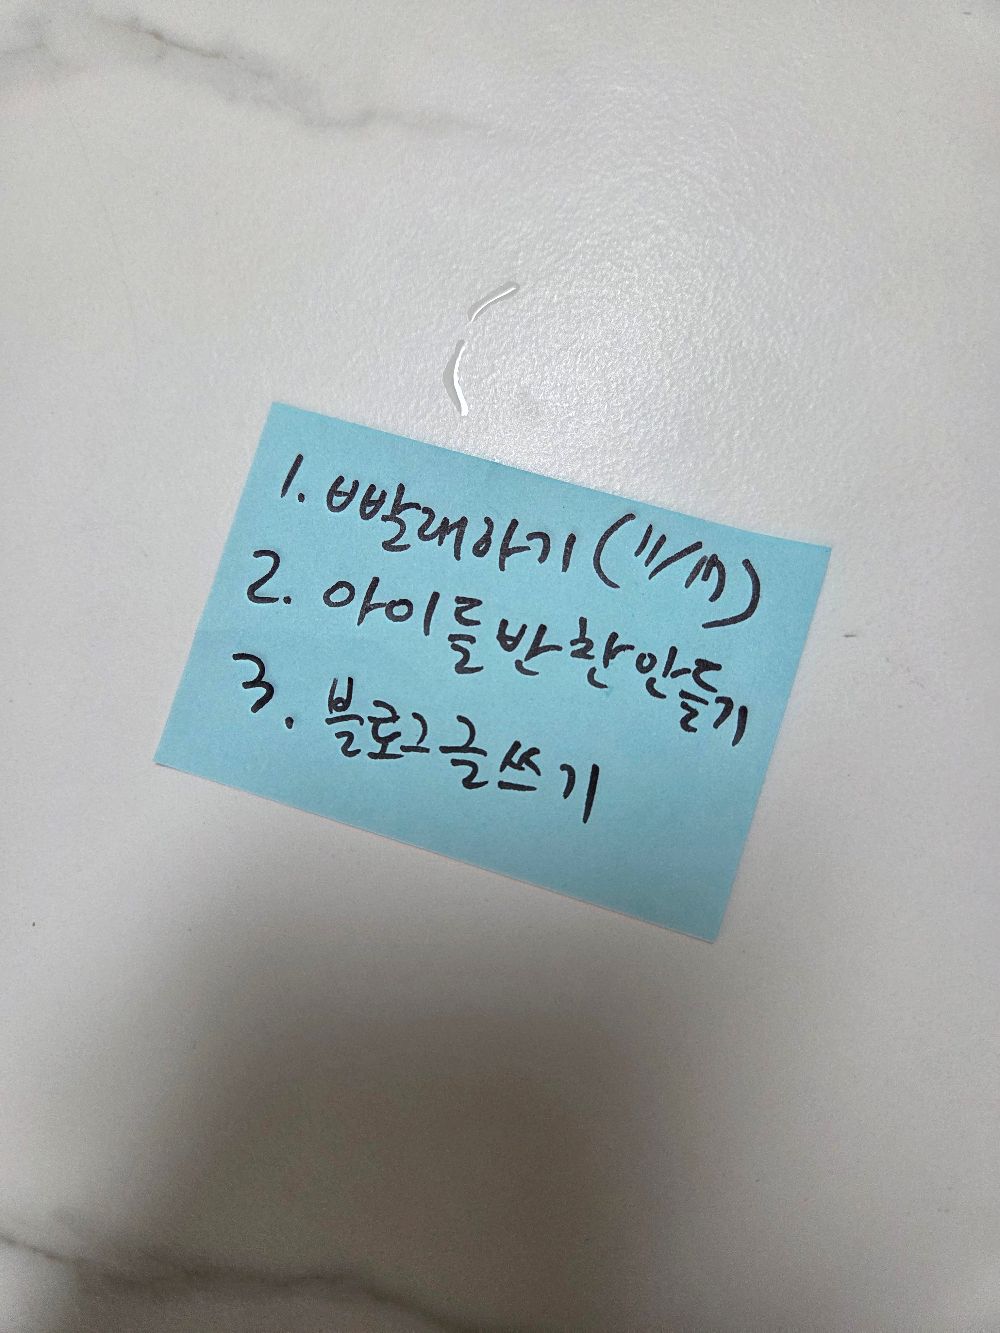 1. 빨래하기 (11/17)
2. 아이들반찬만들기
3. 블로그글쓰기